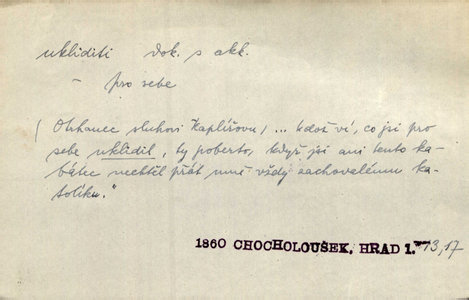 ukliditi dok. s akk.
– pro sebe
(Obhanec sluhovi Kaplířovu) ... kdož ví, co jsi pro
sebe uklidil, ty poberto, když jsi ani tento ka-
bátec nechtěl přát mně vždy zachovalému ka-
tolíku."
1860 CHOCHOLOUŠEK, HRAD 1. 13,17